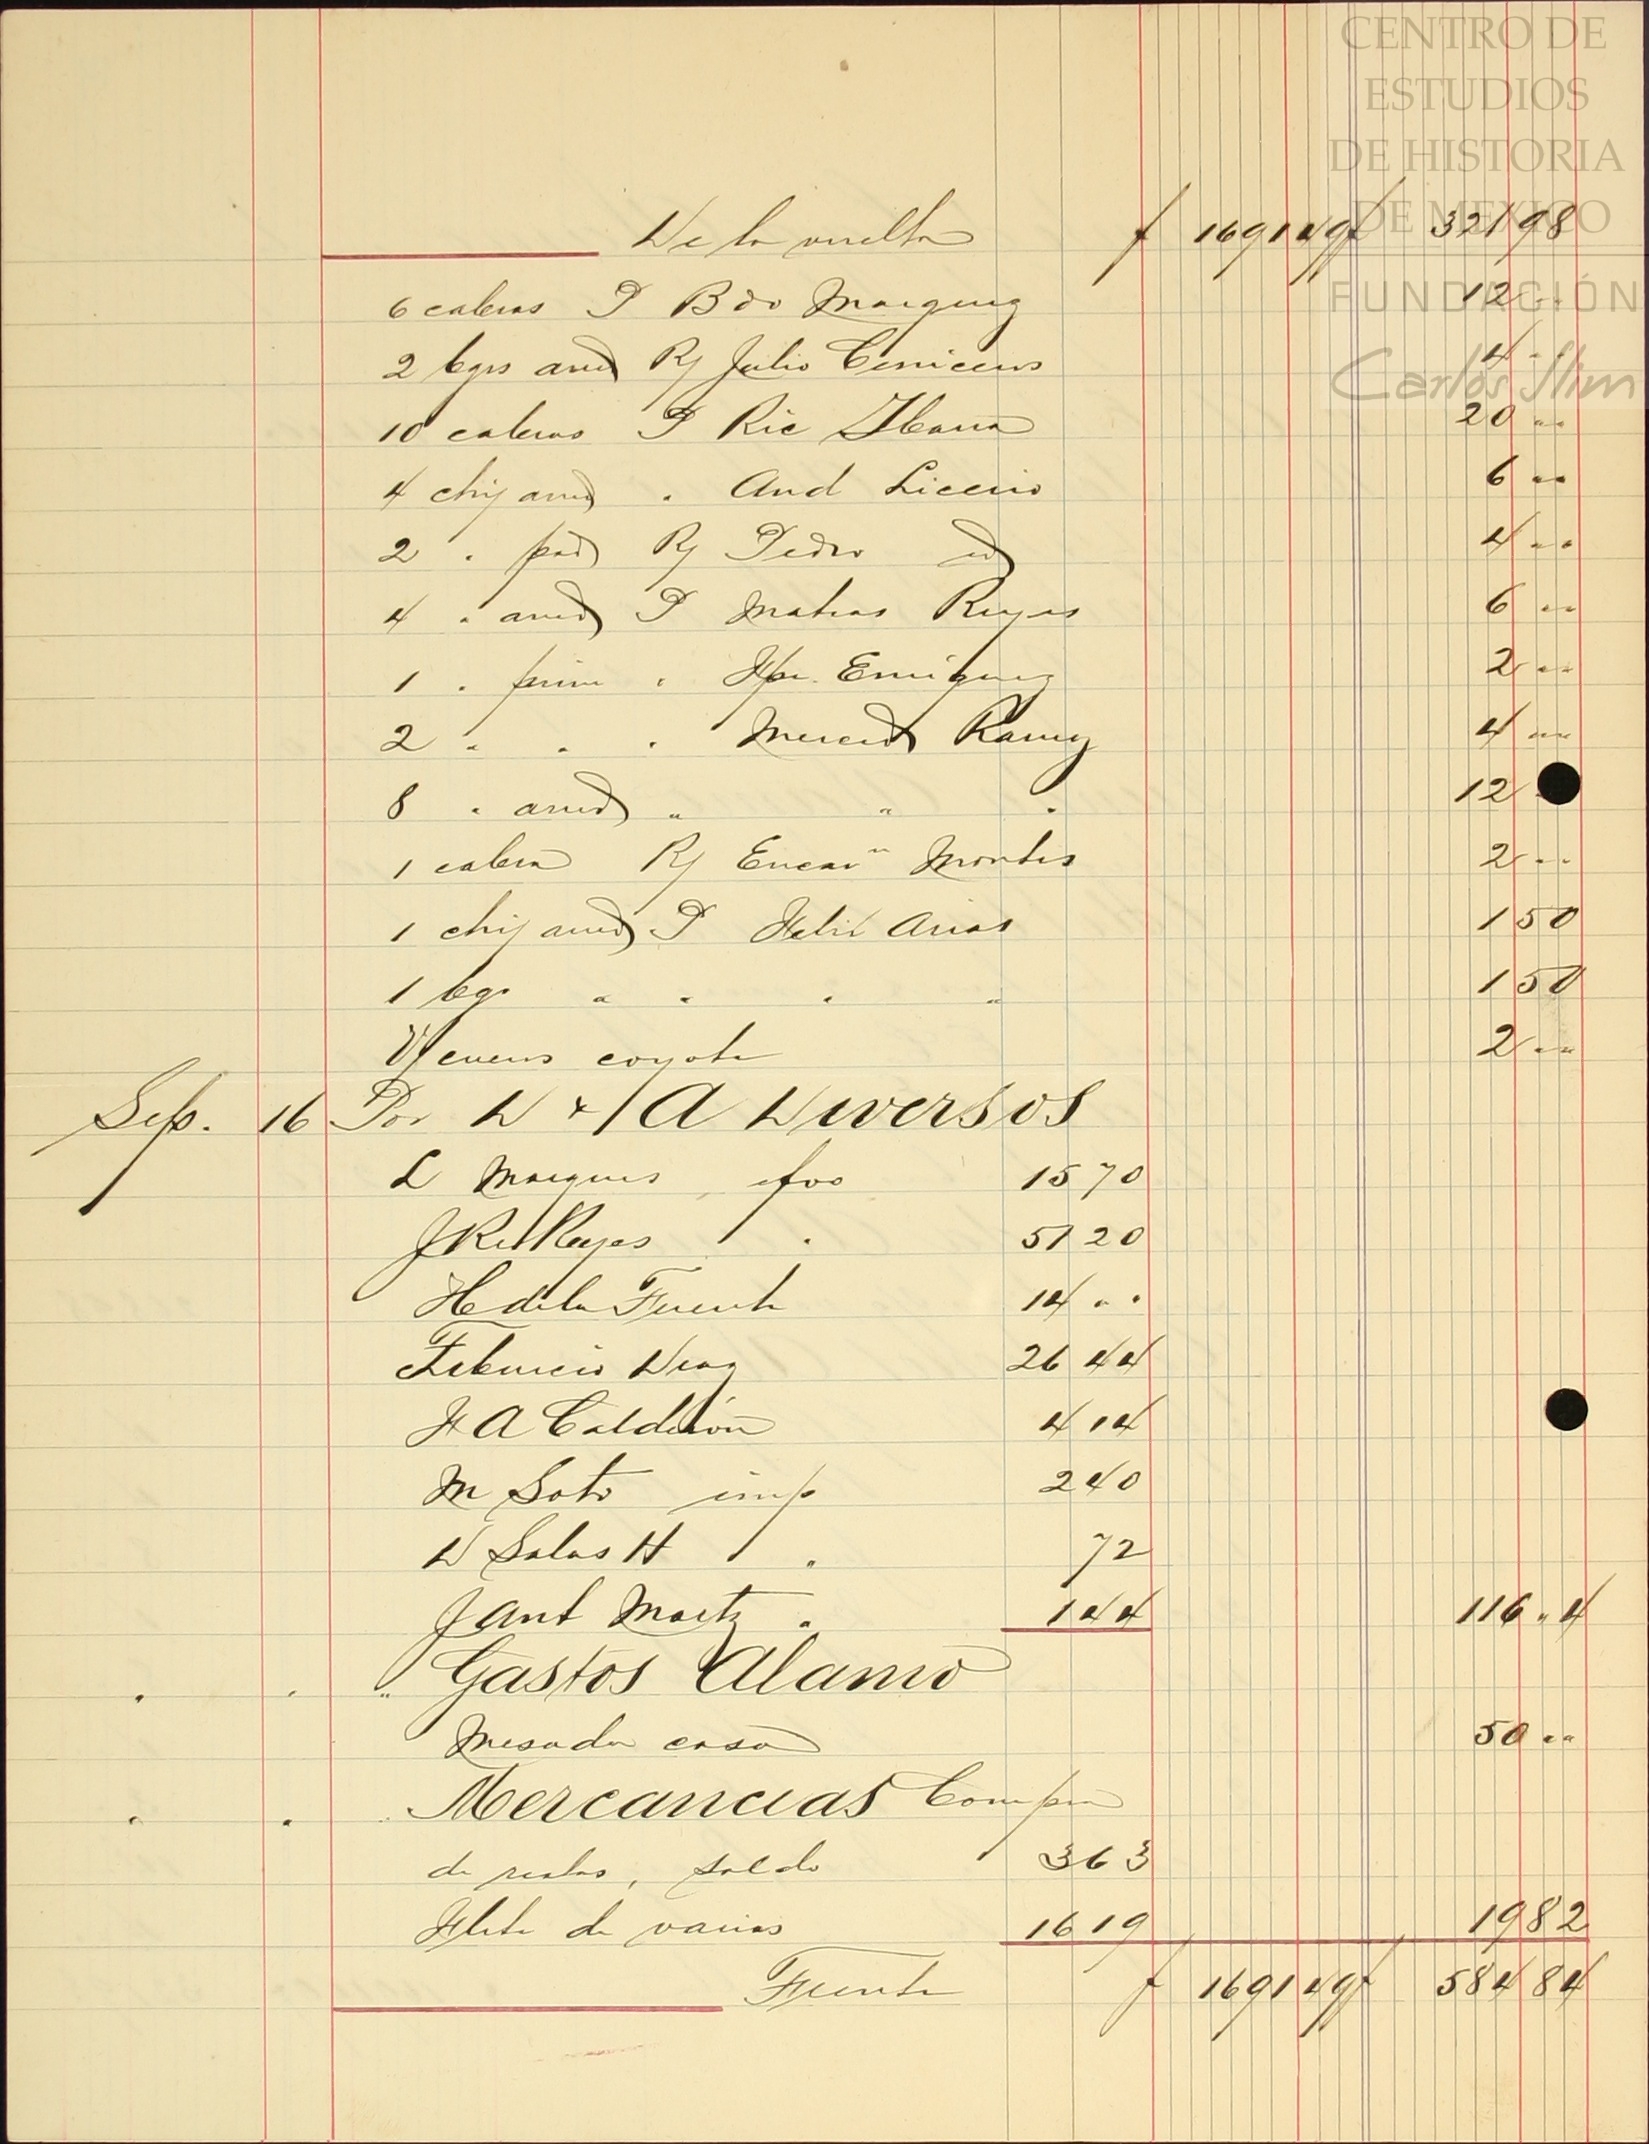 CENTRO DE
ESTUDIOS
DE HISTORIA
DE MEXICO
FUNDACIÓN
Carlos Slim
De la vuelta $ 1691 49 $ 321 98
6 cabras P Bdo Marquez 12 ..
2 bgs and Rf Julio Ceniceros 4 ..
10 cabras P Ric Ibarra 20 ..
4 chij amd . And Licerio 6 ..
2 . pad Rf Pedro id 4 ..
4 . amd P Matias Reyes 6 ..
1 . prim . Hpe Enriquez 2 ..
2 . . . Merced Ramz 4 ..
8 . amd " " " 12
1 cabra Rf Encarn Montes 2 ..
1 chij amd P Felix Arias 1 50
1 bgo " " " " 1 50
cueros coyote 2 ..
Sep. 16 Por D & A Diversos
L Marques, efvo 15 70
J Rel Reyes . 51 20
H de la Fuente 14 ..
Fabricio Diaz 26 44
F A Calderón 4 14
M Soto imp 2 40
D Salas H . 72
J Ant Martz . 1 44 116 . 4
. . " Gastos Alamo
Mesada casa 50 ..
. . . Mercancias Compra
de reatas, saldo 3 63
Flete de varios 16 19 19 82
Frente $ 1691 49 $ 584 84